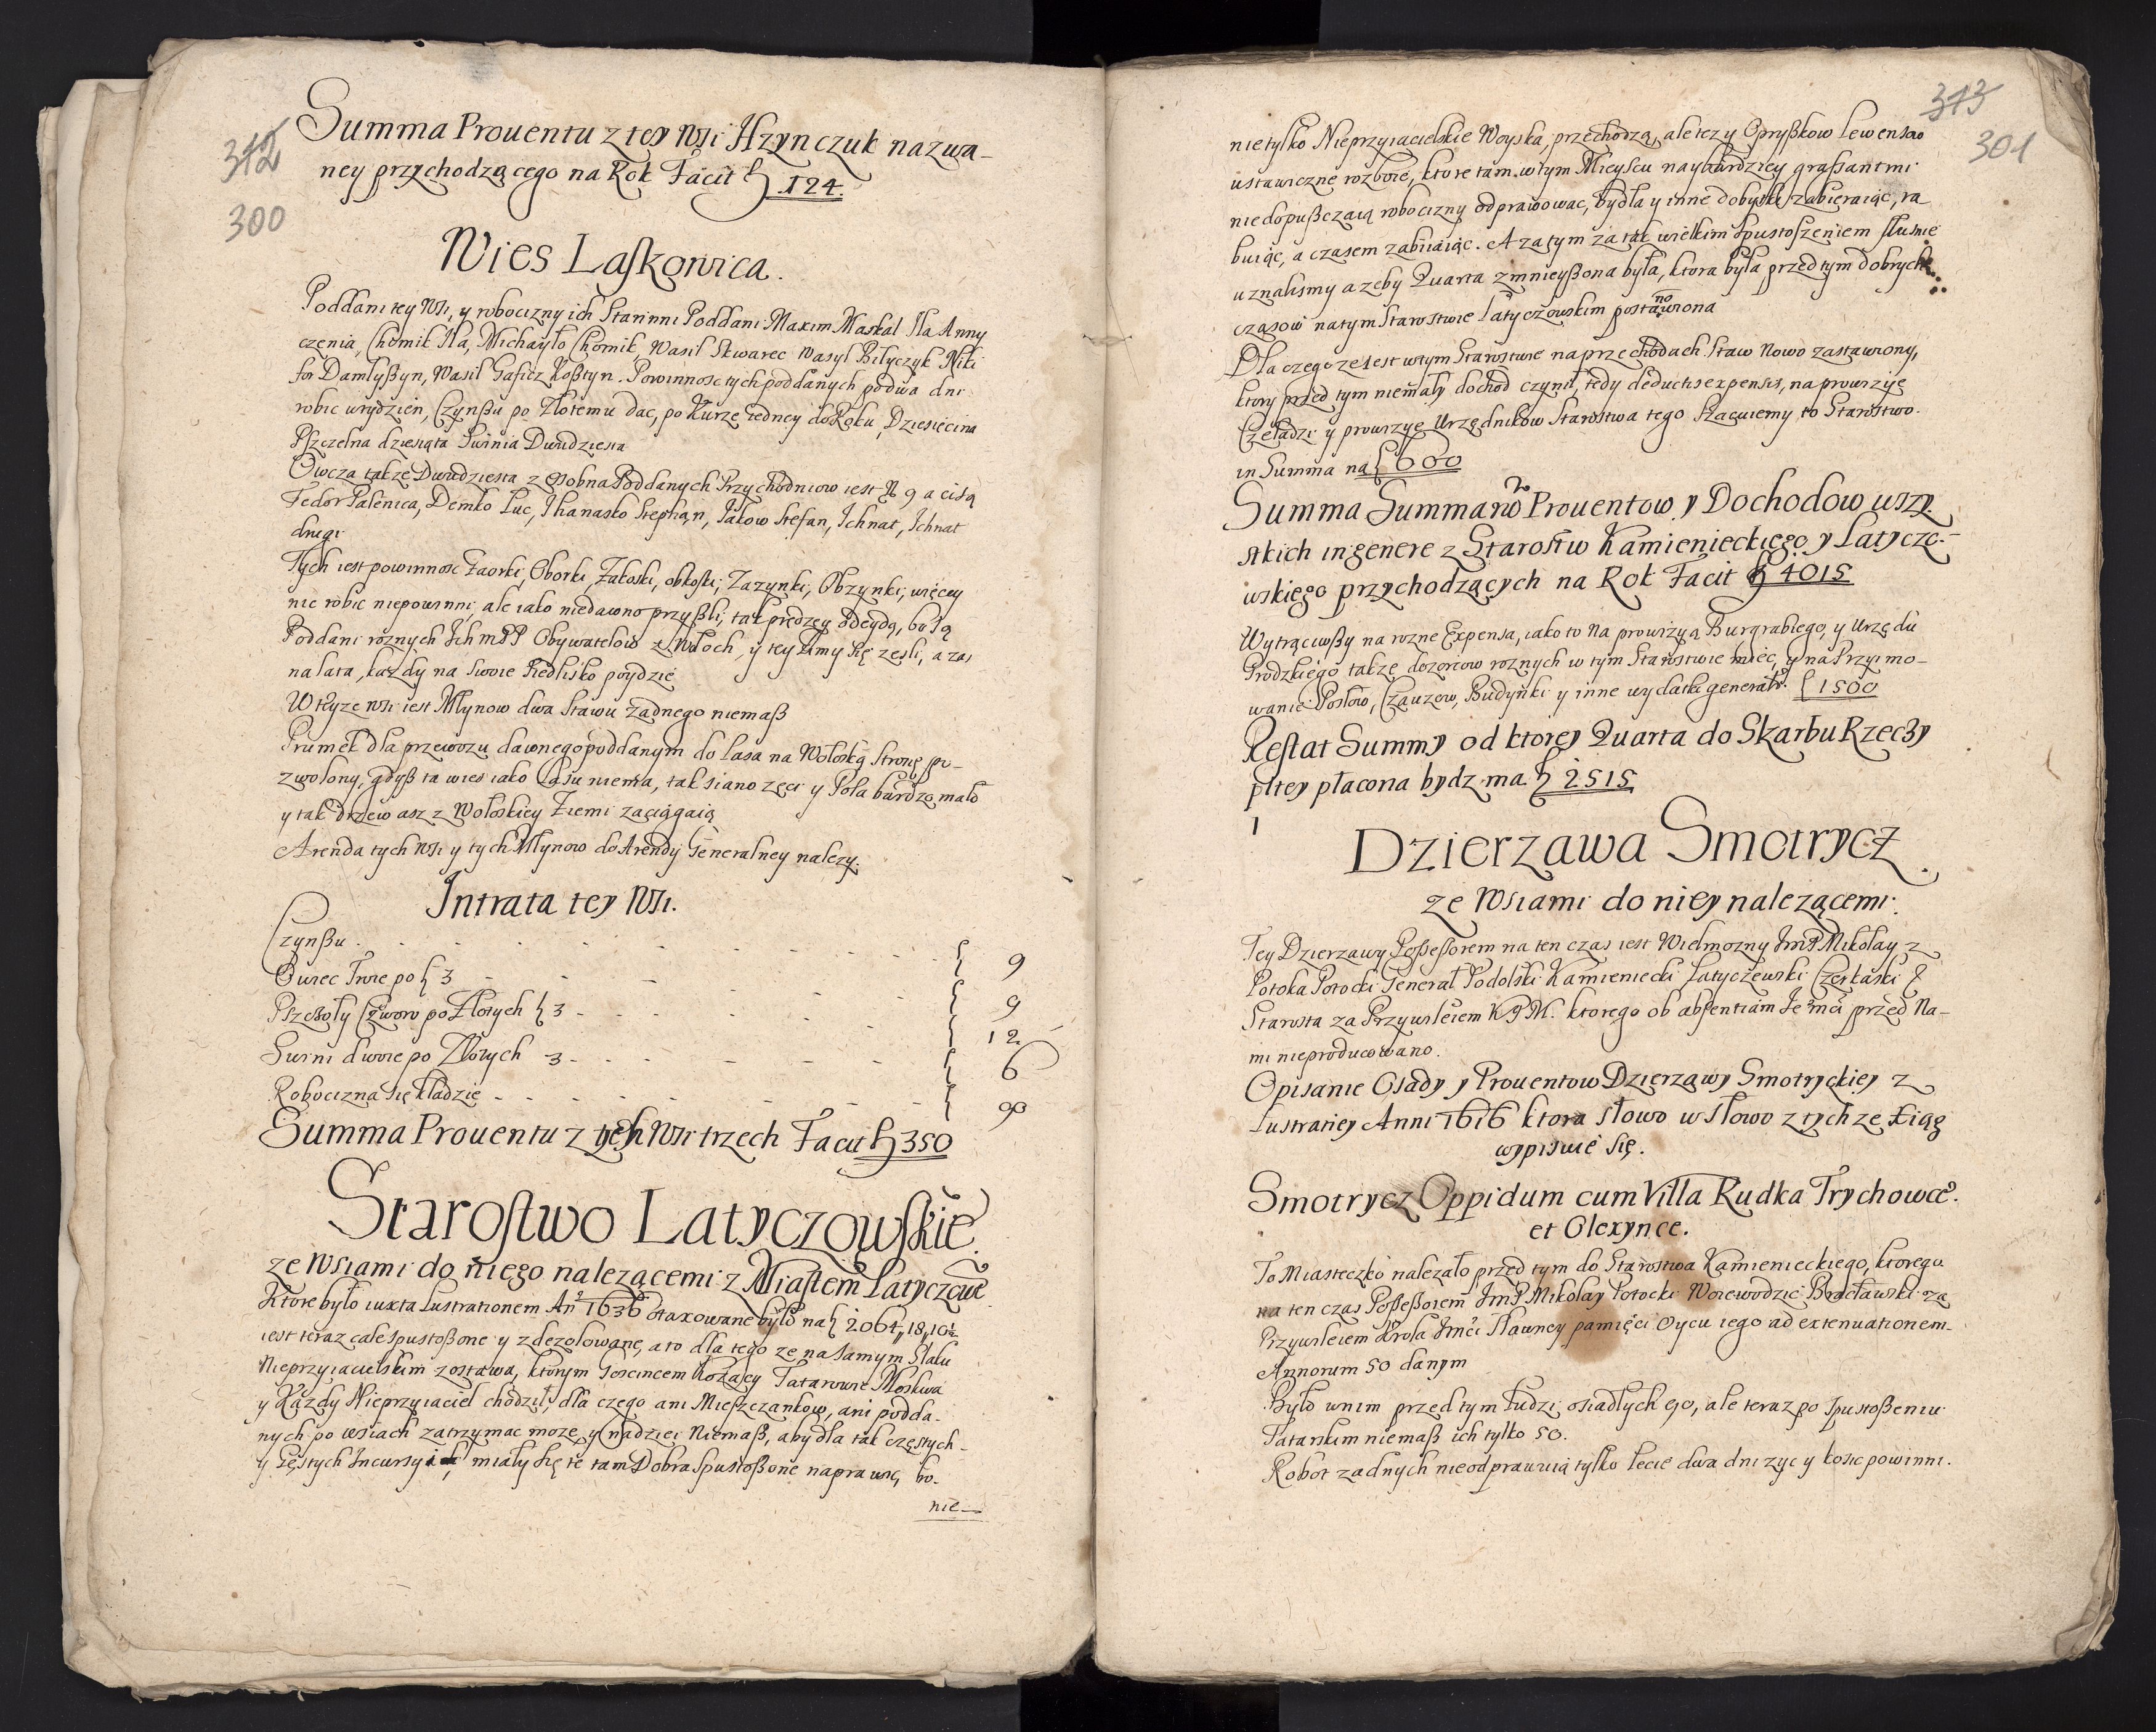 312
300
Summa Prouentu z tey Wsi Hzynczuk nazwa-
ney przychodzącego na Rok Facit 124
Wies Laskowica.
Poddani tey Wsi, y robocizny ich Starinni Poddani Maxim Maskal Ila Anny
częnia, Chomik Ila, Michayło Chomik, Wasil Skwarec Wasyl Biłyczyk Niki
for Damłyßyn, Wasil Gaficz Koßtyn. Powinnosc tych poddanych po dwa dni
robic wtydzien, Czynßu po Złotemu dac, po Kurze iedney do Roku, Dziesięcina
Pszczelna dziesiąta Swinia Dwudziesta
Owcza takze Dwudziesta z osobna Poddanych Przychodniow iest N 9 a ci są
Fedor Palenica, Demko Luc, Ihanasko Stephan, Jakow Stefan, Ichnat, Ichnat
drugi
Tych iest powinnosc Zaorki, Oborki, Zakoski, obkoski, Zazynki, Obzynki, więcey
nic robic niepowinni, ale iako niedawno przyßli, tak prędzey odeydą, bo są
Poddani roznych Ich mPP Obywatelow z Włoch, y tey zimy się zesli, a zas
na lata, kazdy na swoie siedlisko poydzie
W teyze Wsi iest Młynow dwa Stawu zadnego niemaß
Prumek dla przewozu dawnego poddanym do lasa na Wołoską stronę po-
zwolony, gdyß ta wies iako Lasu niema, tak siano zęci y Pola bardzo mało
y tak drzewo asz z Wołoskiey Ziemi zaciągaią
Arenda tych Wsi y tych Młynow do Arendy Generalney nalezy.
Intrata tey Wsi.
Czynßu - - - 9
Owiec Troie po 3 - - - 9
Pszczoły Czworo po Złotych 3 - - - 12
Swini dwoie po Złotych 3 - - - 6
Robocizna się kładzie - - - 90
Summa Prouentu z tych Wsi trzech Facit 350
Starostwo Latyczowskie
ze Wsiami do niego nalezącemi z Miastem Latyczewe
Ktore było iuxta Lustrationem An 1636 otaxowane było na 2064, 18, 10½
iest teraz cale spustoßone y zdezolowane, a to dla tego ze na samym Slaku
Nieprzyiacielskim zostawa, ktorym Goscincem Kozacy Tatarowie Moskwa
y Kazdy Nieprzyiaciel chodził, dla czego ani Mieszczankow, ani podda-
nych po wsiach zatrzymac moze, y nadziei niemaß, aby dla tak częstych
y Gęstych Incursyi miały się te tam Dobra Spustoßone naprawic, bo-
nie
313
301
nie tylko Nieprzyiacielskie Woyska, przechodzą, ale tez y Opryßkow Lewensow
ustawiczne rozboie, ktore tam w tym Mieyscu naybardziey graßantmi
niedopußczaią robocizny odprawowac, bydła y inne dobytki zabieraiąc, ra
buiąc, a czasem zabiiaiąc. A za tym za tak wielkim Spustoszeniem słusznie
uznalismy a zeby Quarta zmnieyßona była, ktora była przed tym dobrych
czasow na tym Starostwie Latyczowskim postanowiona
Dla czego ze iest w tym Starostwie na przechodach Staw Nowo zastawiony,
ktory przed tym niemały dochod czynił, tedy deductis expensis, na prowizyę
Czeladzi y prowizyę Urzędnikow Starostwa tego Szacuiemy to Starostwo.
in Summa na 600
Summa Summarũ Prouentow y Dochodow wszy-
stkich in genere z Starostw Kamienieckiego y Latyczo-
wskiego przychodzących na Rok Facit 4015
Wytrąciwßy na rozne Expensa, iako to Na prowizyą Burgrabiego, y Urzędu
Grodzkiego takze dozorcow roznych w tym Starostwie miec, y na Przyimo-
wanie Posłow, Czauzow, Budynki y inne wydatki general. 1500
Restat Summy od ktorey Quarta do Skarbu Rzeczy
pltey płacona bydz ma 2515
Dzierzawa Smotrycz
ze Wsiami do niey nalezącemi.
Tey Dzierzawy Poßeßorem na ten czas iest Wielmozny ImP Mikolay z
Potoka Potocki Generał Podolski Kamieniecki Latyczewski Czerkaski &
Starosta za Przywileiem KJM. ktorego ob absentiam Je mci przed Na-
mi nieproducowano.
Opisanie Osady y Prouentow Dzierzawy Smotryckiey z
Lustratiey Anni 1616 ktora słowo w słowo z tych ze Xiąg
wypisuie się.
Smotrycz Oppidum cum Villa Rudka Trychowce.
et Olexynce.
To Miasteczko nalezało przed tym do Starostwa Kamienieckiego, ktorego
na ten czas Poßeßorem ImP Mikolay Potocki Woiewodzic Bracławski za
Przywileiem Krola Jmci sławney pamięci Oycu iego ad extenuationem
Annorum 50 danym
Było w nim przed tym ludzi osiadłych 90, ale teraz po Spustoßeniu
Tatarskim niemaß ich tylko 50.
Robot zadnych nieodprawuią tylko lecie dwa dni zyc y kosic powinni.